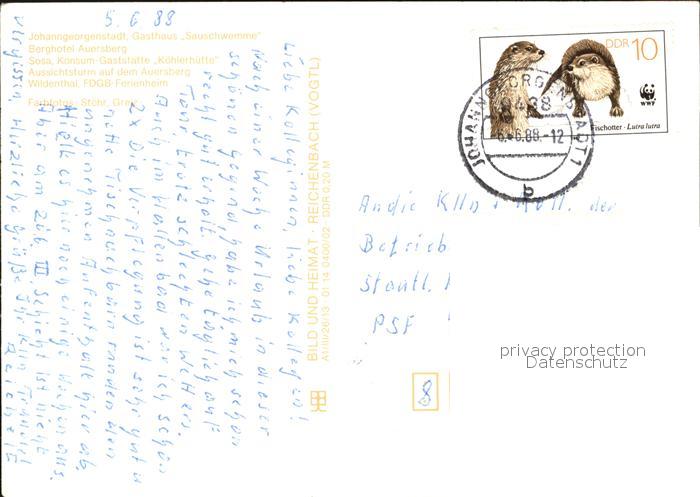 5. 6. 88
Johanngeorgenstadt, Gasthaus „Sauschwemme“
Berghotel Auersberg
Sosa, Konsum-Gaststätte „Köhlerhütte“
Aussichtsturm auf dem Auersberg
Wildenthal, FDGB-Ferienheim
Farbfotos: Stöhr, Grei
Liebe Kolleginnen, liebe Kollegen!
Nach einer Woche Urlaub in dieser
schönen Gegend habe ich mich schon
recht gut erholt, gehe täglich auf
Tour trotz schlechten Wetters.
Auch im Hallenbad war ich schon
2x Die Verpflegung ist sehr gut u
nette Tischnachbarn runden den
angenehmen Aufenthalt hier ab.
Halte es hier noch einige Wochen aus.
Aber am 20.6. III. Schicht ist nicht
vergessen Herzliche Grüße
BILD UND HEIMAT · REICHENBACH (VOGTL)
A1/III/26/13 01 14 0400/02 · DDR 0,20 M
DDR 10
WWF
Fischotter · Lutra lutra
JOHANNGEORGENSTADT 1
9438
-6.-6.88.-12
a
An die Klln + Koll. der
Betrieb
Staatl.
PSF
8
privacy protection
Datenschutz